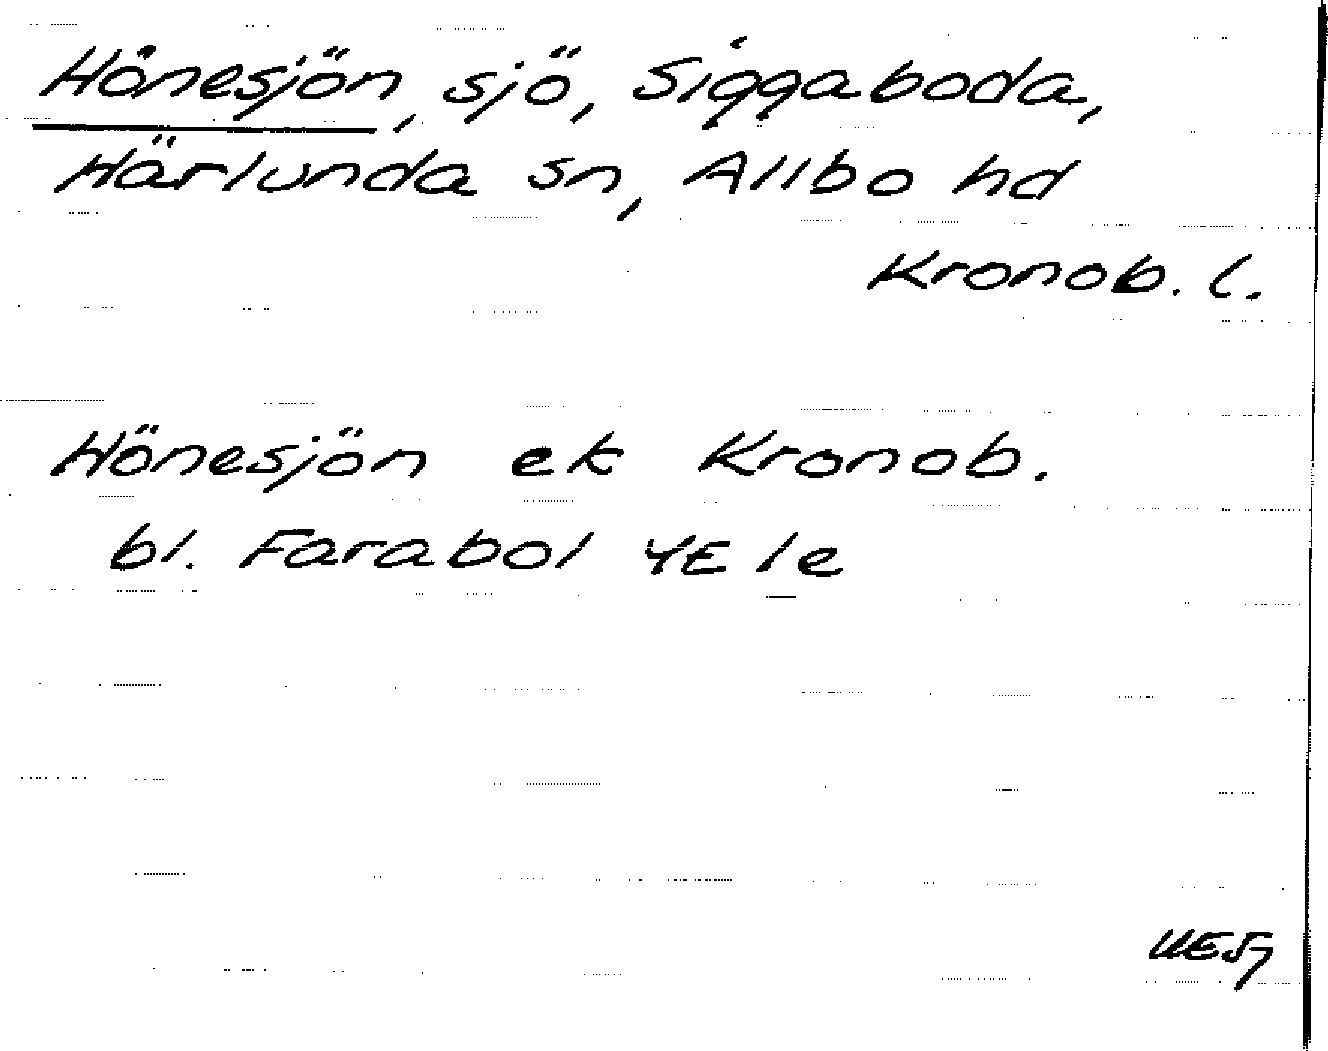 Hönesjön, sjö, Siggaboda,
Härlunda sn, Allbo hd
Kronob. l.
Hönesjön ek Kronob.
bl. Farabol 4E le